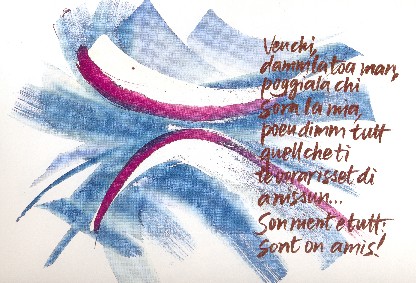 Ven chi,
dammla toa man,
poggiala chi
sora la mia,
poeu dimm tutt
quell che ti
te vorarisset dì
a nissun...
Son nient e tutt:
sont on amis!